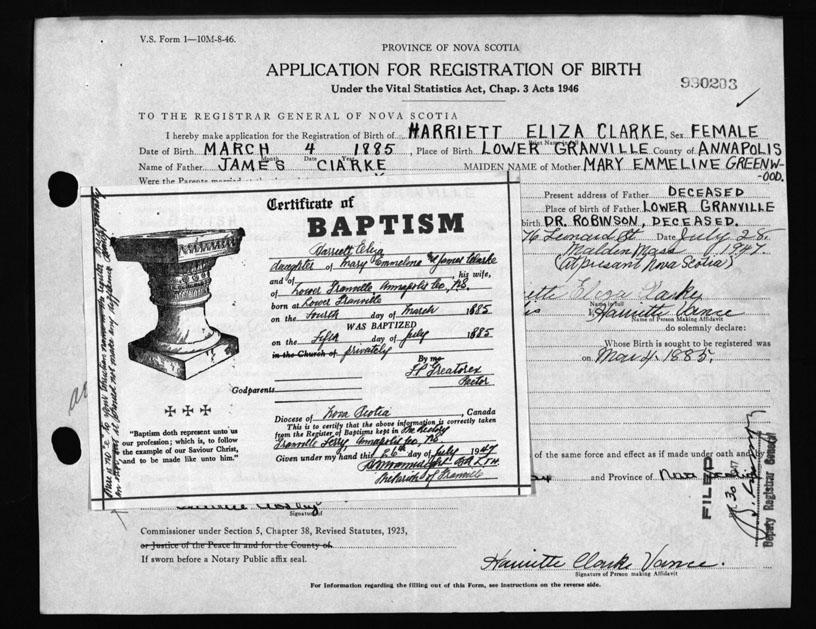 V.S. Form 1—10M-8-46.
PROVINCE OF NOVA SCOTIA
APPLICATION FOR REGISTRATION OF BIRTH
990203
Under the Vital Statistics Act, Chap. 3 Acts 1946
TO THE REGISTRAR GENERAL OF NOVA SCOTIA
I hereby make application for the Registration of Birth of HARRIETT ELIZA CLARKE, Sex FEMALE
Date of Birth MARCH 4 1885, Place of Birth LOWER GRANVILLE County of ANNAPOLIS
Month Date Year
Name of Father JAMES CLARKE MAIDEN NAME of Mother MARY EMMELINE GREENW-
-OOD.
Were the Parents married
Present address of Father DECEASED
Place of birth of Father LOWER GRANVILLE
birth DR. ROBINSON, DECEASED.
76 Leonard St Date July 28
Malden Mass 1947.
(At present Nova Scotia)
Eliza Clarke
Name in full
I, Harriette Vance
Name of Person Making Affidavit
do solemnly declare:
Whose Birth is sought to be registered was
on Mar 4 1885.
of the same force and effect as if made under oath and by
and Province of Nova Scotia
FILED
Deputy Registrar General
Certificate of
BAPTISM
Harriett Eliza
daughter of Mary Emmeline & James Clarke
and of , his wife,
of Lower Granville Annapolis Co, N.S.
born at Lower Granville
on the Fourth day of March 1885
WAS BAPTIZED
on the Fifth day of July 1885
in the Church of privately
By me
Greatorex
Rector
Godparents
"Baptism doth represent unto us
our profession; which is, to follow
the example of our Saviour Christ,
and to be made like unto him."
Diocese of Nova Scotia, Canada
This is to certify that the above information is correctly taken
from the Register of Baptisms kept in The Rectory
Granville Ferry, Annapolis Co, N.S.
Given under my hand this 26th day of July 1947
The Parish of Granville
Signature of
Commissioner under Section 5, Chapter 38, Revised Statutes, 1923,
or Justice of the Peace in and for the County of
If sworn before a Notary Public affix seal.
Harriette Clarke Vance.
Signature of Person making Affidavit
For Information regarding the filling out of this Form, see instructions on the reverse side.